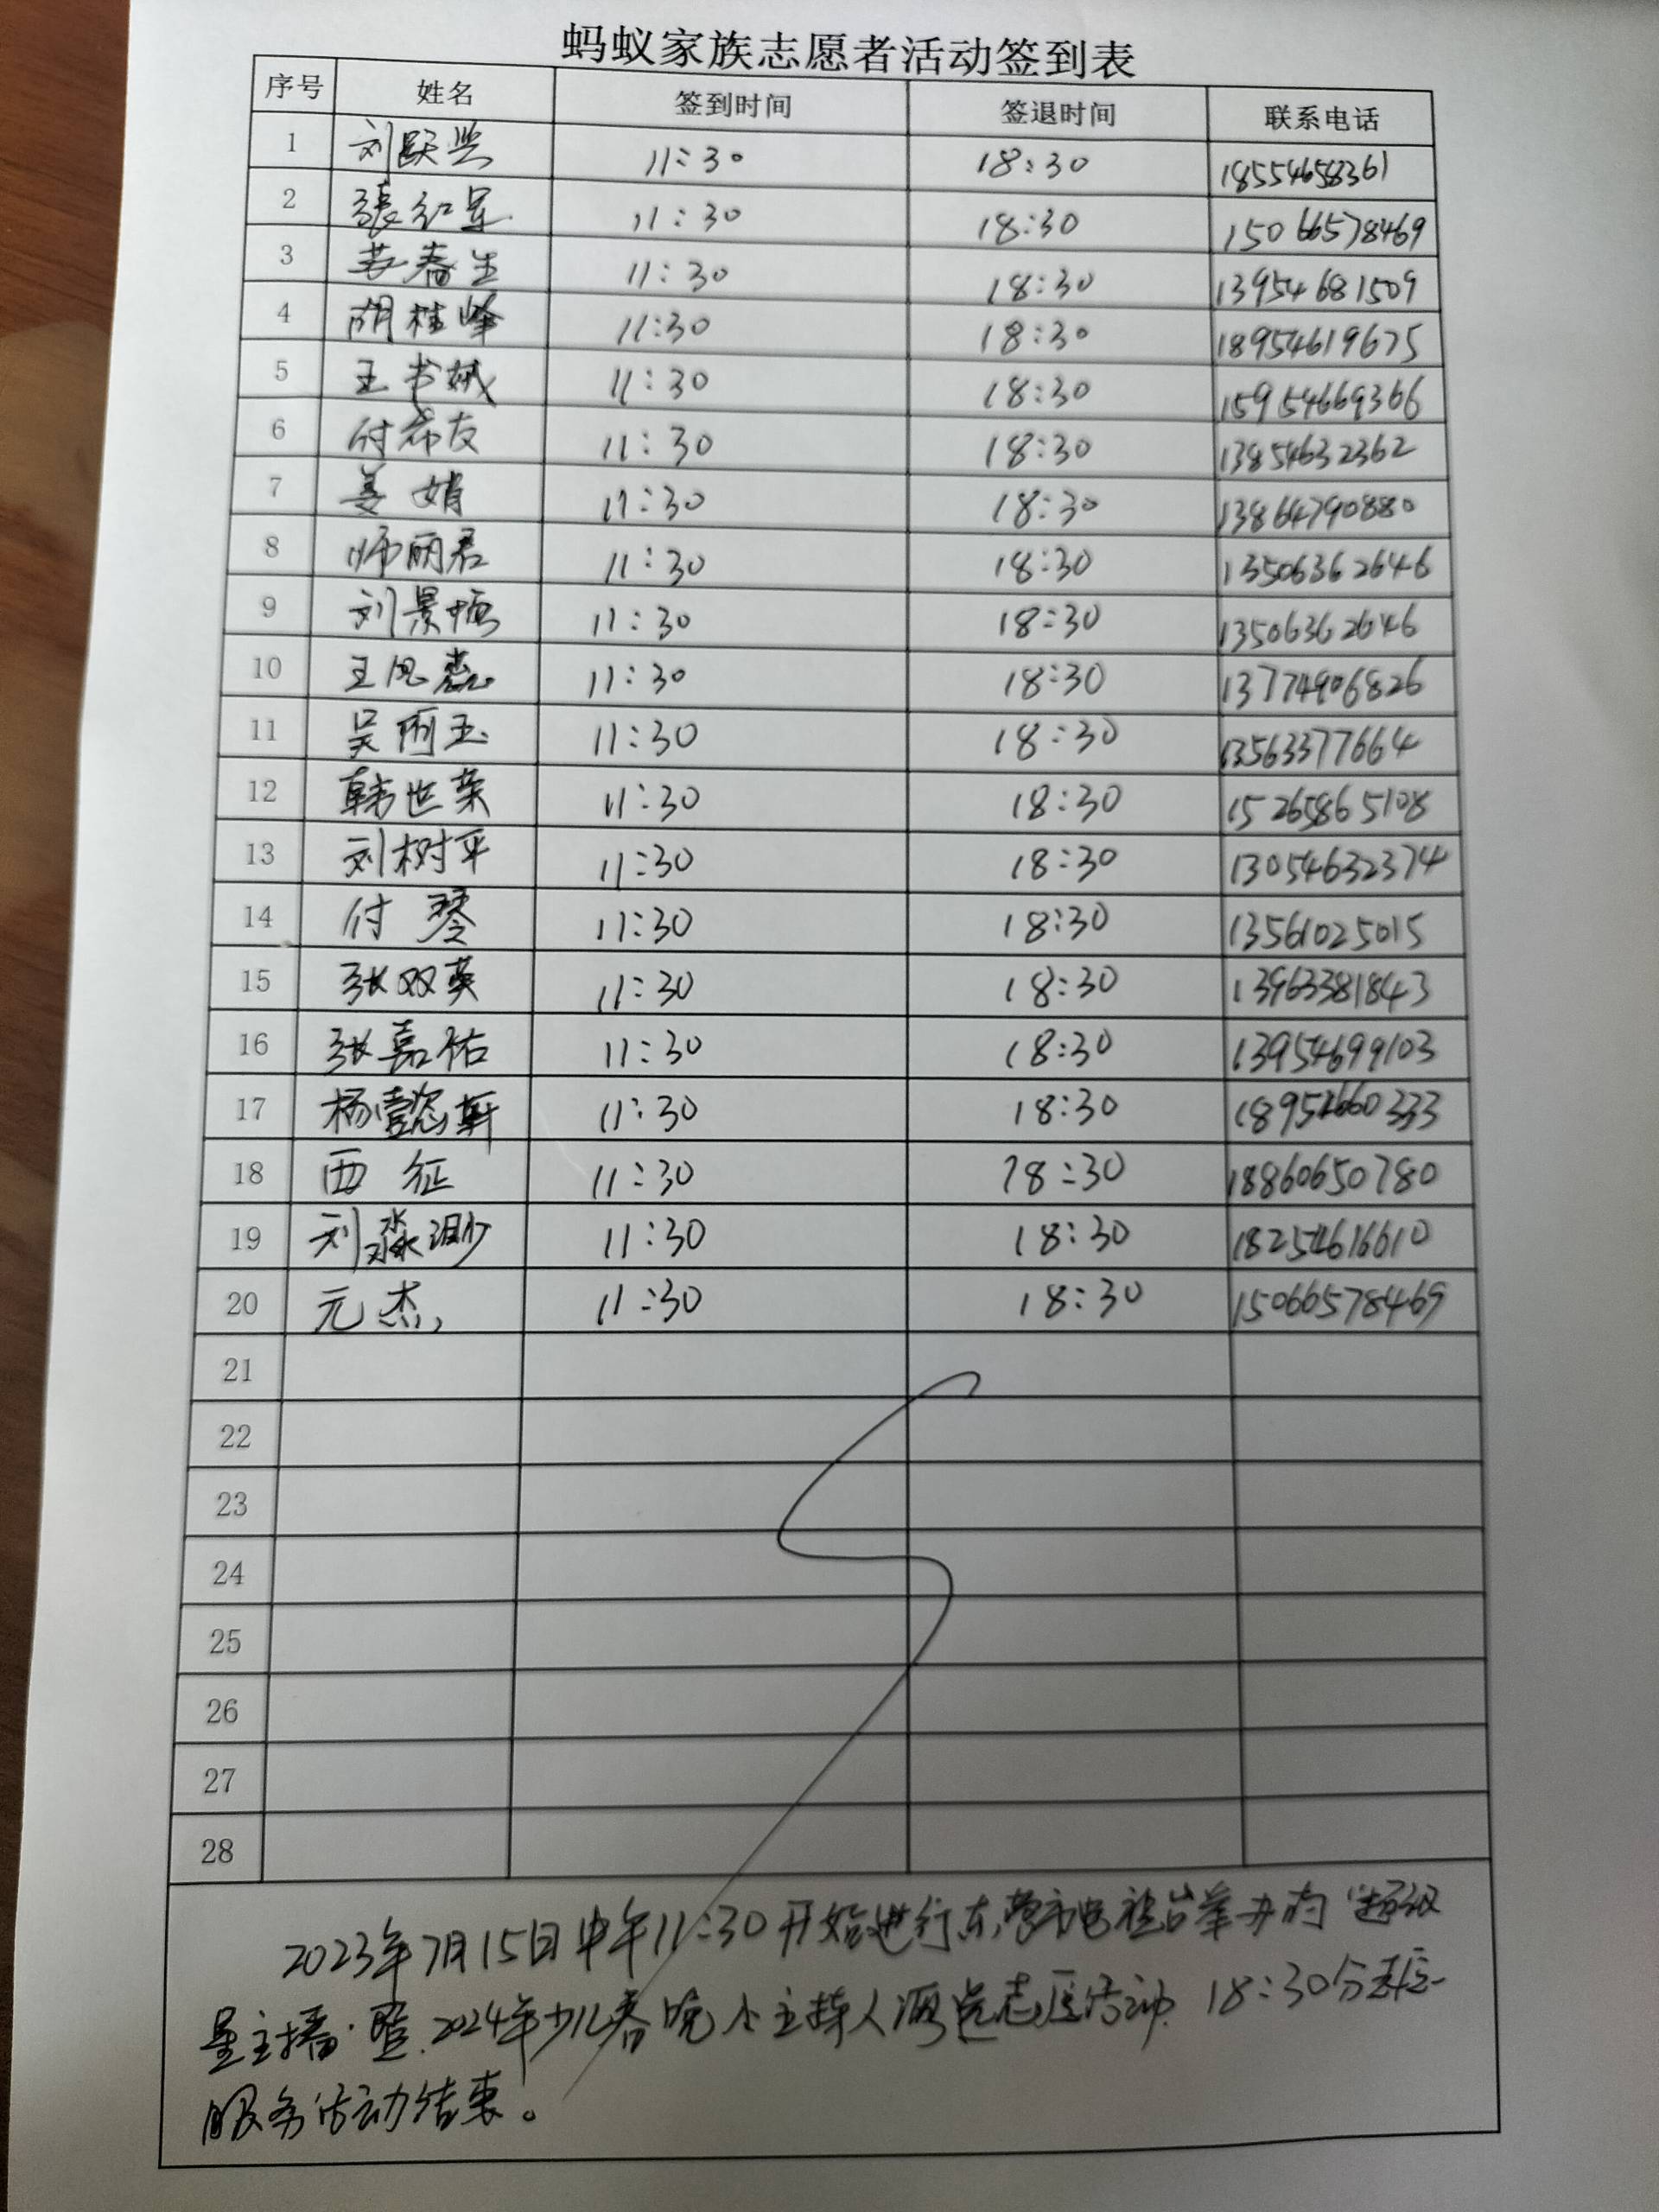 蚂蚁家族志愿者活动签到表
序号 姓名 签到时间 签退时间 联系电话
1 刘跃兴 11:30 18:30 18554658361
2 張红星 11:30 18:30 15066578469
3 苏春生 11:30 18:30 13954681509
4 胡桂峰 11:30 18:30 18954619675
5 王书斌 11:30 18:30 15954669366
6 付希友 11:30 18:30 13854632362
7 姜娟 11:30 18:30 13864790880
8 师丽君 11:30 18:30 13506362646
9 刘景恒 11:30 18:30 13506362646
10 王凤蕊 11:30 18:30 13774906826
11 吴丽玉 11:30 18:30 13563377664
12 韩世荣 11:30 18:30 15265865108
13 刘树平 11:30 18:30 13054632374
14 付琴 11:30 18:30 13561025015
15 张双英 11:30 18:30 13963381843
16 张嘉祐 11:30 18:30 13954699103
17 杨懿轩 11:30 18:30 18954660333
18 西征 11:30 18:30 18860650780
19 刘淼渺 11:30 18:30 18254616610
20 元杰 11:30 18:30 15066578469
21
22
23
24
25
26
27
28
2023年7月15日中午11:30开始进行东营市电视台举办的"超级
星主播·暨2024年少儿春晚小主持人海选志愿活动.18:30分
服务活动结束。